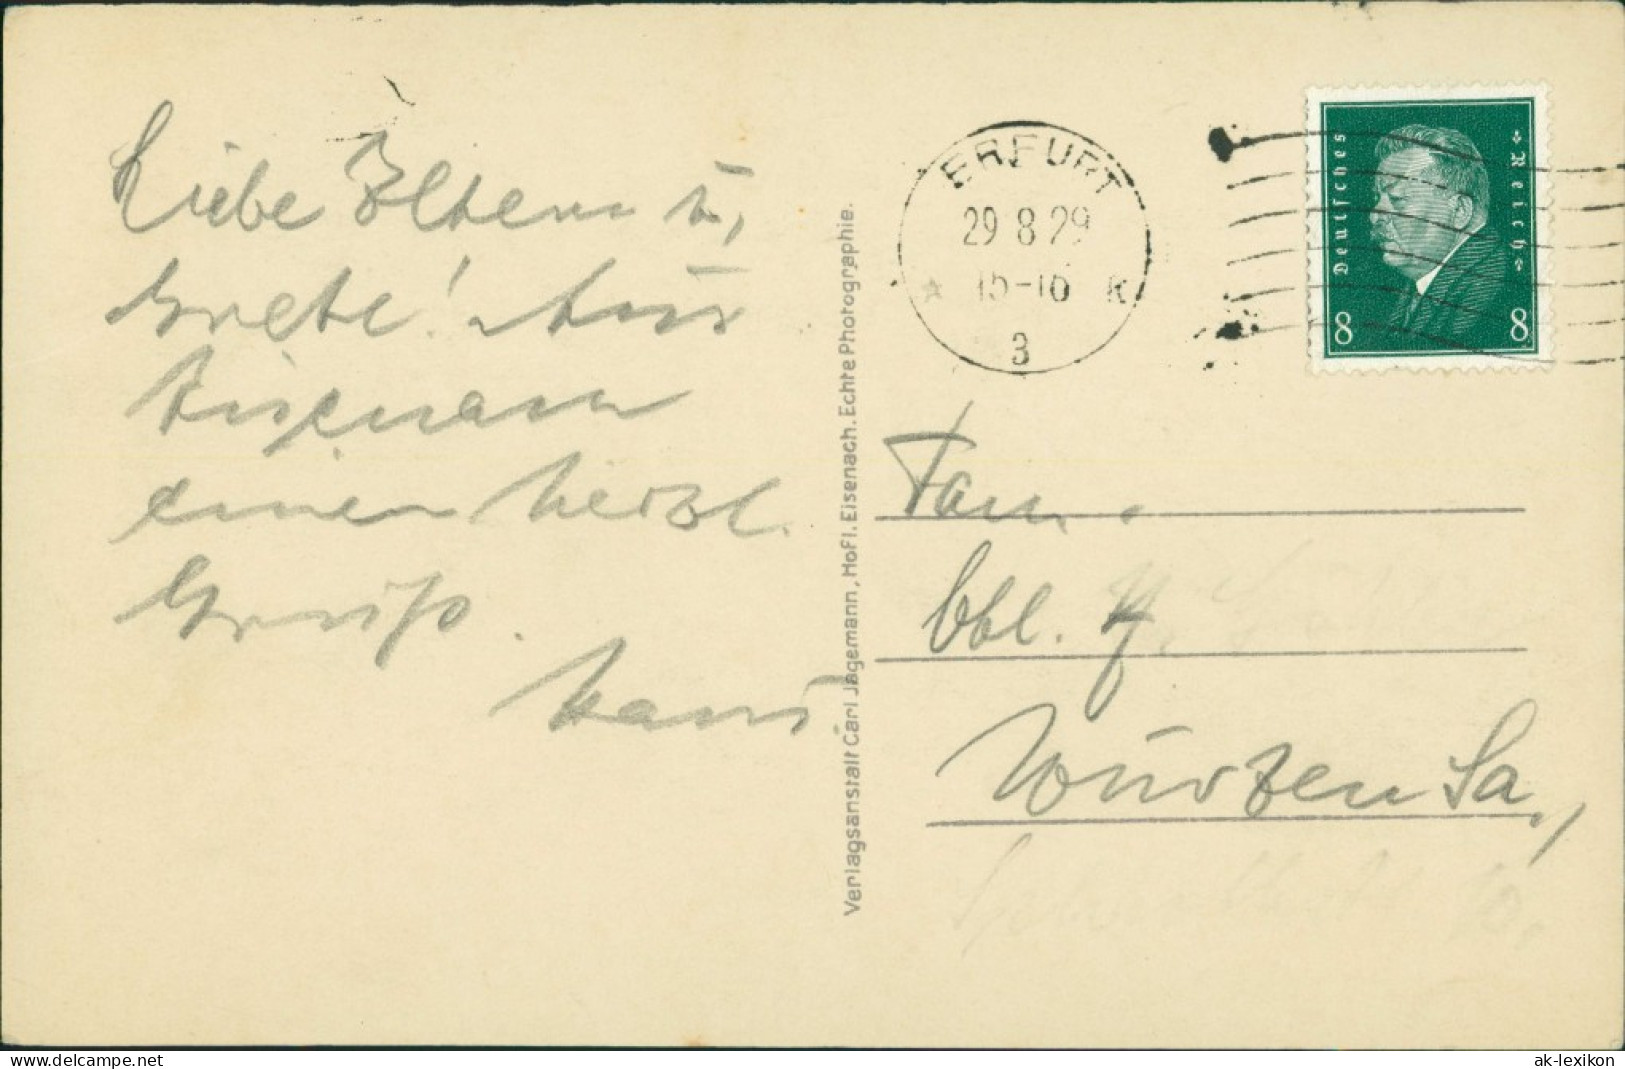 Liebe Eltern u,
Grete! Aus
Eisenach
einen herzl.
Gruß.
Hans.
Verlagsanstalt Carl Jagemann, Hofl. Eisenach. Echte Photographie.
ERFURT
29 8 29
* 15-16 K
3
Deutsches Reich
8 8
Fam.
Obl.
Wurzen Sa.,
10.
www.delcampe.net
ak-lexikon